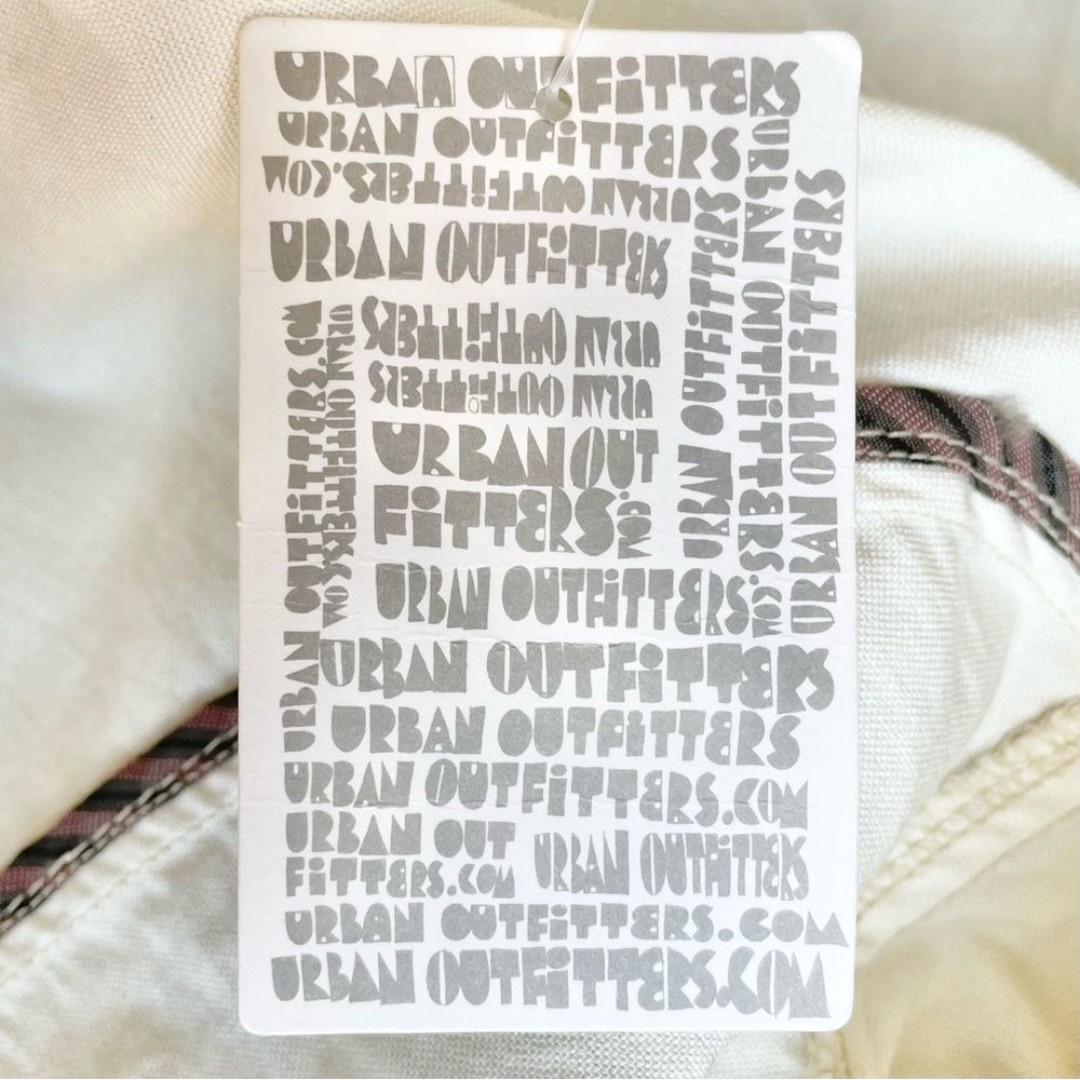 URBAN OUTFITTERS
URBAN OUTFITTERS
URBAN OUTFITTERS.COM
URBAN OUTFITTERS
URBAN OUTFITTERS
URBAN OUTFITTERS
URBAN OUT
FITTERS.COM
URBAN OUTFITTERS.COM
URBAN OUTFITTERS.COM
URBAN OUTFITTERS
URBAN OUTFITTERS.COM
URBAN OUTFITTERS
URBAN OUTFITTERS
URBAN OUTFITTERS
URBAN OUTFITTERS
URBAN OUTFITTERS.COM
URBAN OUT
FITTERS.COM
URBAN OUTFITTERS
URBAN OUTFITTERS.COM
URBAN OUTFITTERS.COM